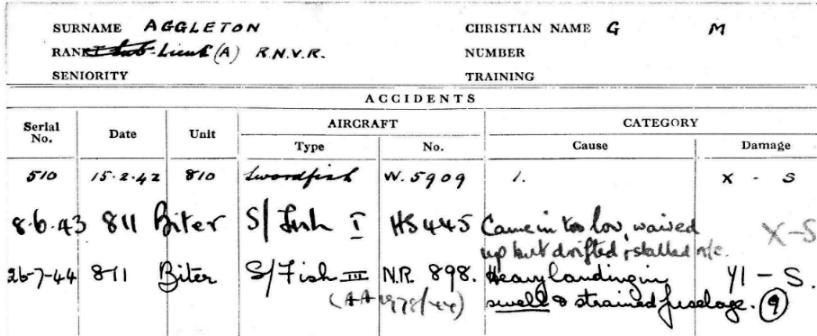 SURNAME AGGLETON CHRISTIAN NAME G M
RANK Sub-Lieut (A) R.N.V.R. NUMBER
SENIORITY TRAINING
ACCIDENTS
Serial No. Date Unit AIRCRAFT CATEGORY
Type No. Cause Damage
510 15.2.42 810 Swordfish W.5909 1. X - S
8.6.43 811 Biter S/Fish I HS445 Came in too low, waived X-S
up but drifted & stalled a/c.
26-7-44 811 Biter S/Fish III N.R. 898. Heavy landing in Y1 - S.
(AA 1978/44) swell & strained fuselage. (9)